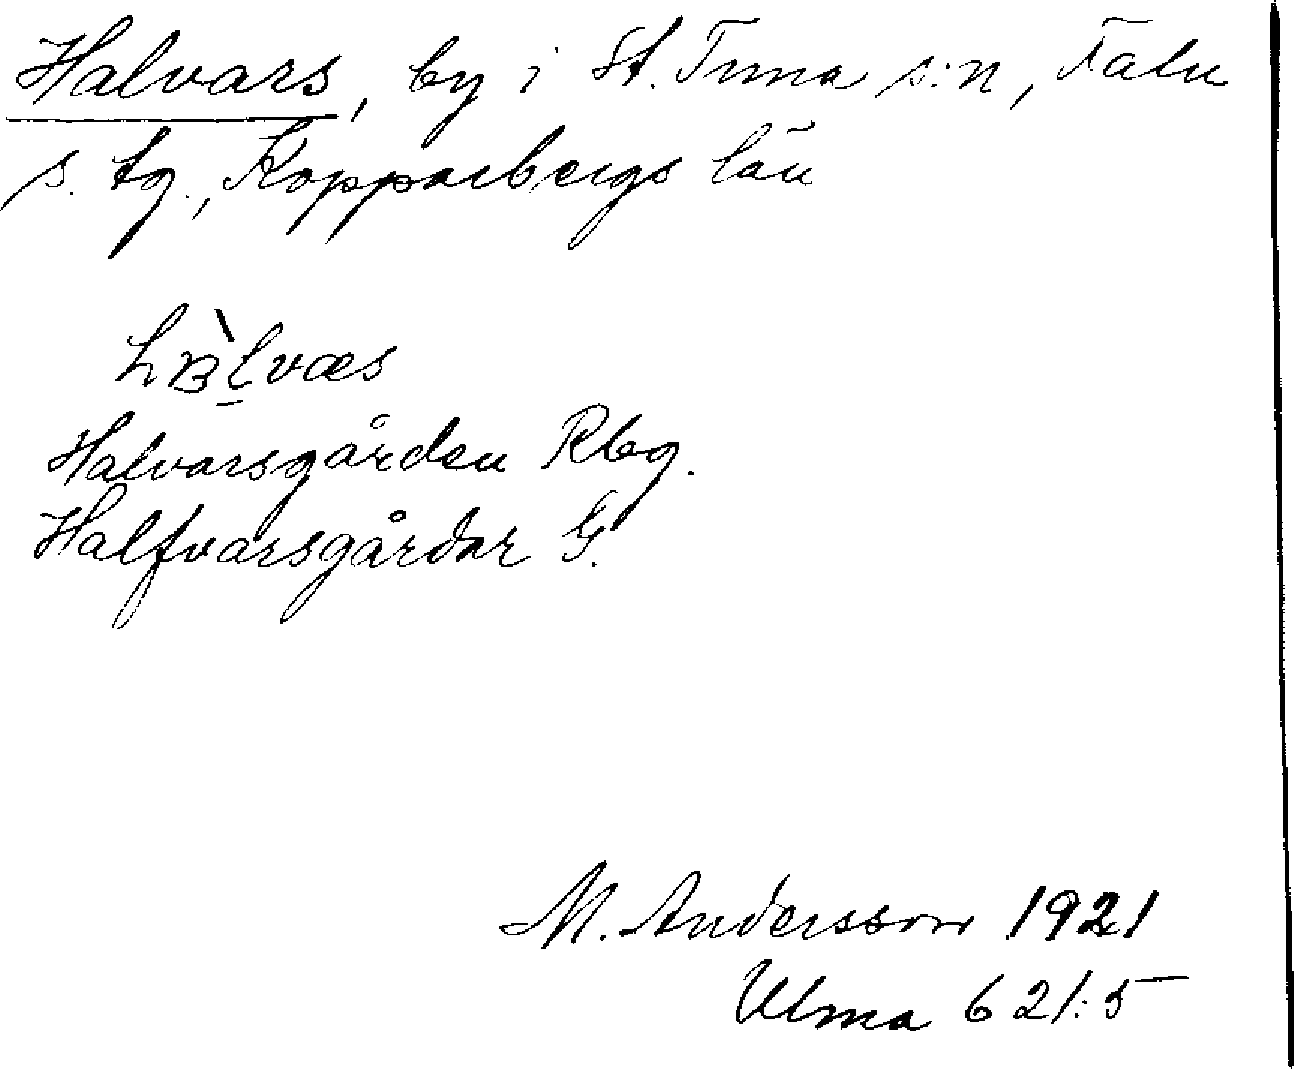 Halvars, by i St. Tuna s:n, Falu
s. tg., Kopparbergs län
Halvarsgården Rbg.
Halfvarsgårdar G.
M. Andersson 1921
Ulma 621:5